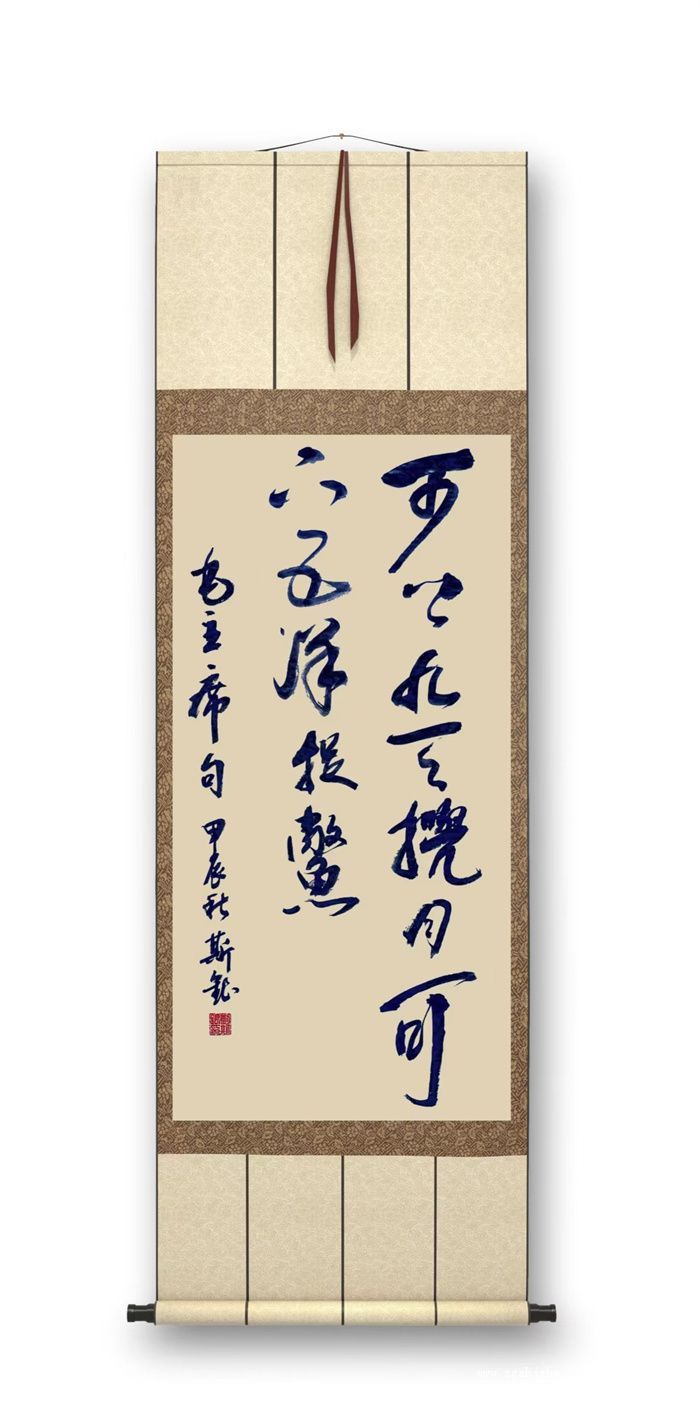 可上九天攬月可
下五洋捉鱉
毛主席句 甲辰秋 斯